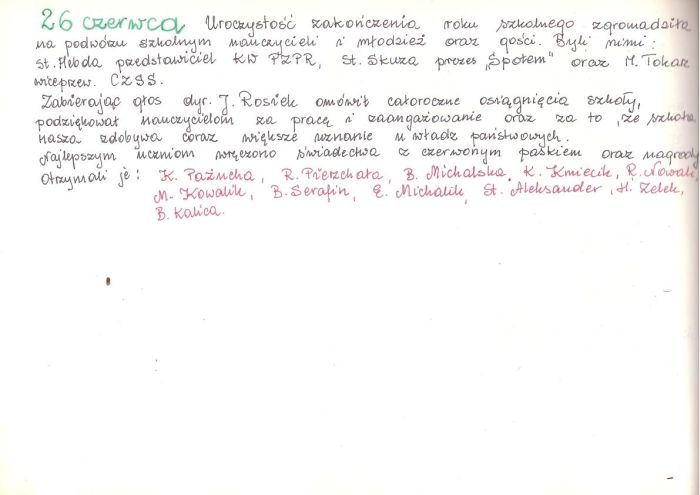 26 czerwca Uroczystość zakończenia roku szkolnego zgromadziła
na podwórzu szkolnym nauczycieli i młodzież oraz gości. Byli nimi:
St. Hebda przedstawiciel KW PZPR, St. Skuza prezes „Społem" oraz M. Tokarz
wiceprzew. CZSS.
Zabierając głos dyr. J. Rosiek omówił całoroczne osiągnięcia szkoły,
podziękował nauczycielom za pracę i zaangażowanie oraz za to, że szkoła
nasza zdobywa coraz większe uznanie u władz państwowych.
Najlepszym uczniom wręczono świadectwa z czerwonym paskiem oraz nagrody
Otrzymali je: K. Paźucha, R. Pierzchała, B. Michalska, K. Kmiecik, R. Nowak,
M. Kowalik, B. Serafin, E. Michalik, St. Aleksander, H. Zelek,
B. Kalica.